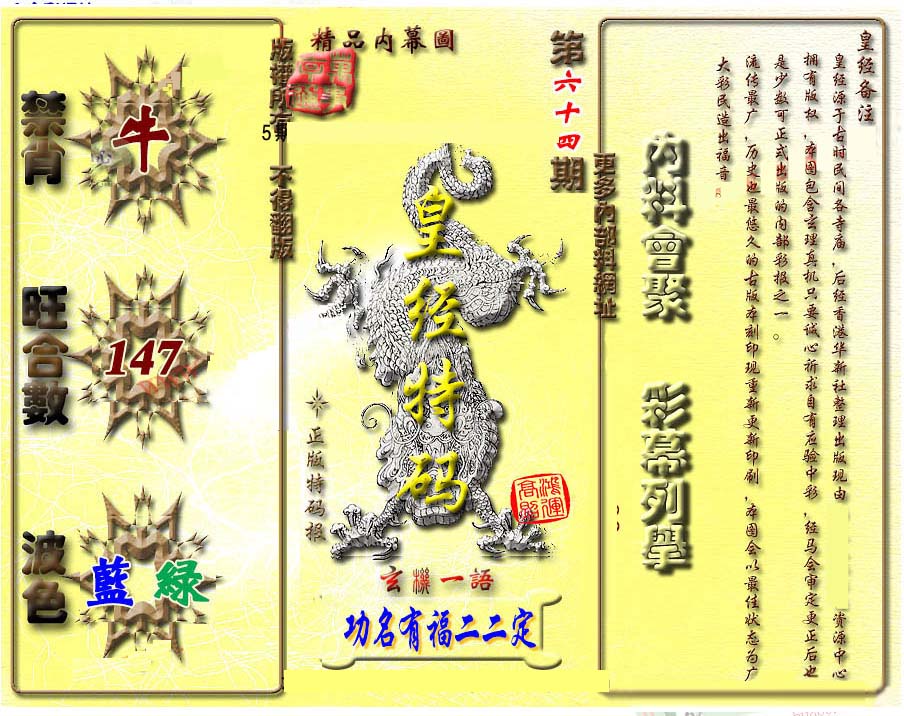 禁肖
牛
旺合數
147
波色
藍 綠
精品内幕圖
版權所有 不得翻版
5期
第六十四期
更多內部料網址
皇经特码
正版特码报
鴻運高照
玄機一語
功名有福二二定
内料會聚
彩幕列舉
皇经备注
皇经源于古时民间各寺庙,后经香港华新社整理出版现由 资源中心
拥有版权,本图包含玄理真机只要诚心祈求自有应验中彩,经马会审定更正后也
是少数可正式出版的内部彩报之一。
流传最广,历史也最悠久的古版本刻印现重新更新印刷,本图会以最佳状态为广
大彩民造出福音